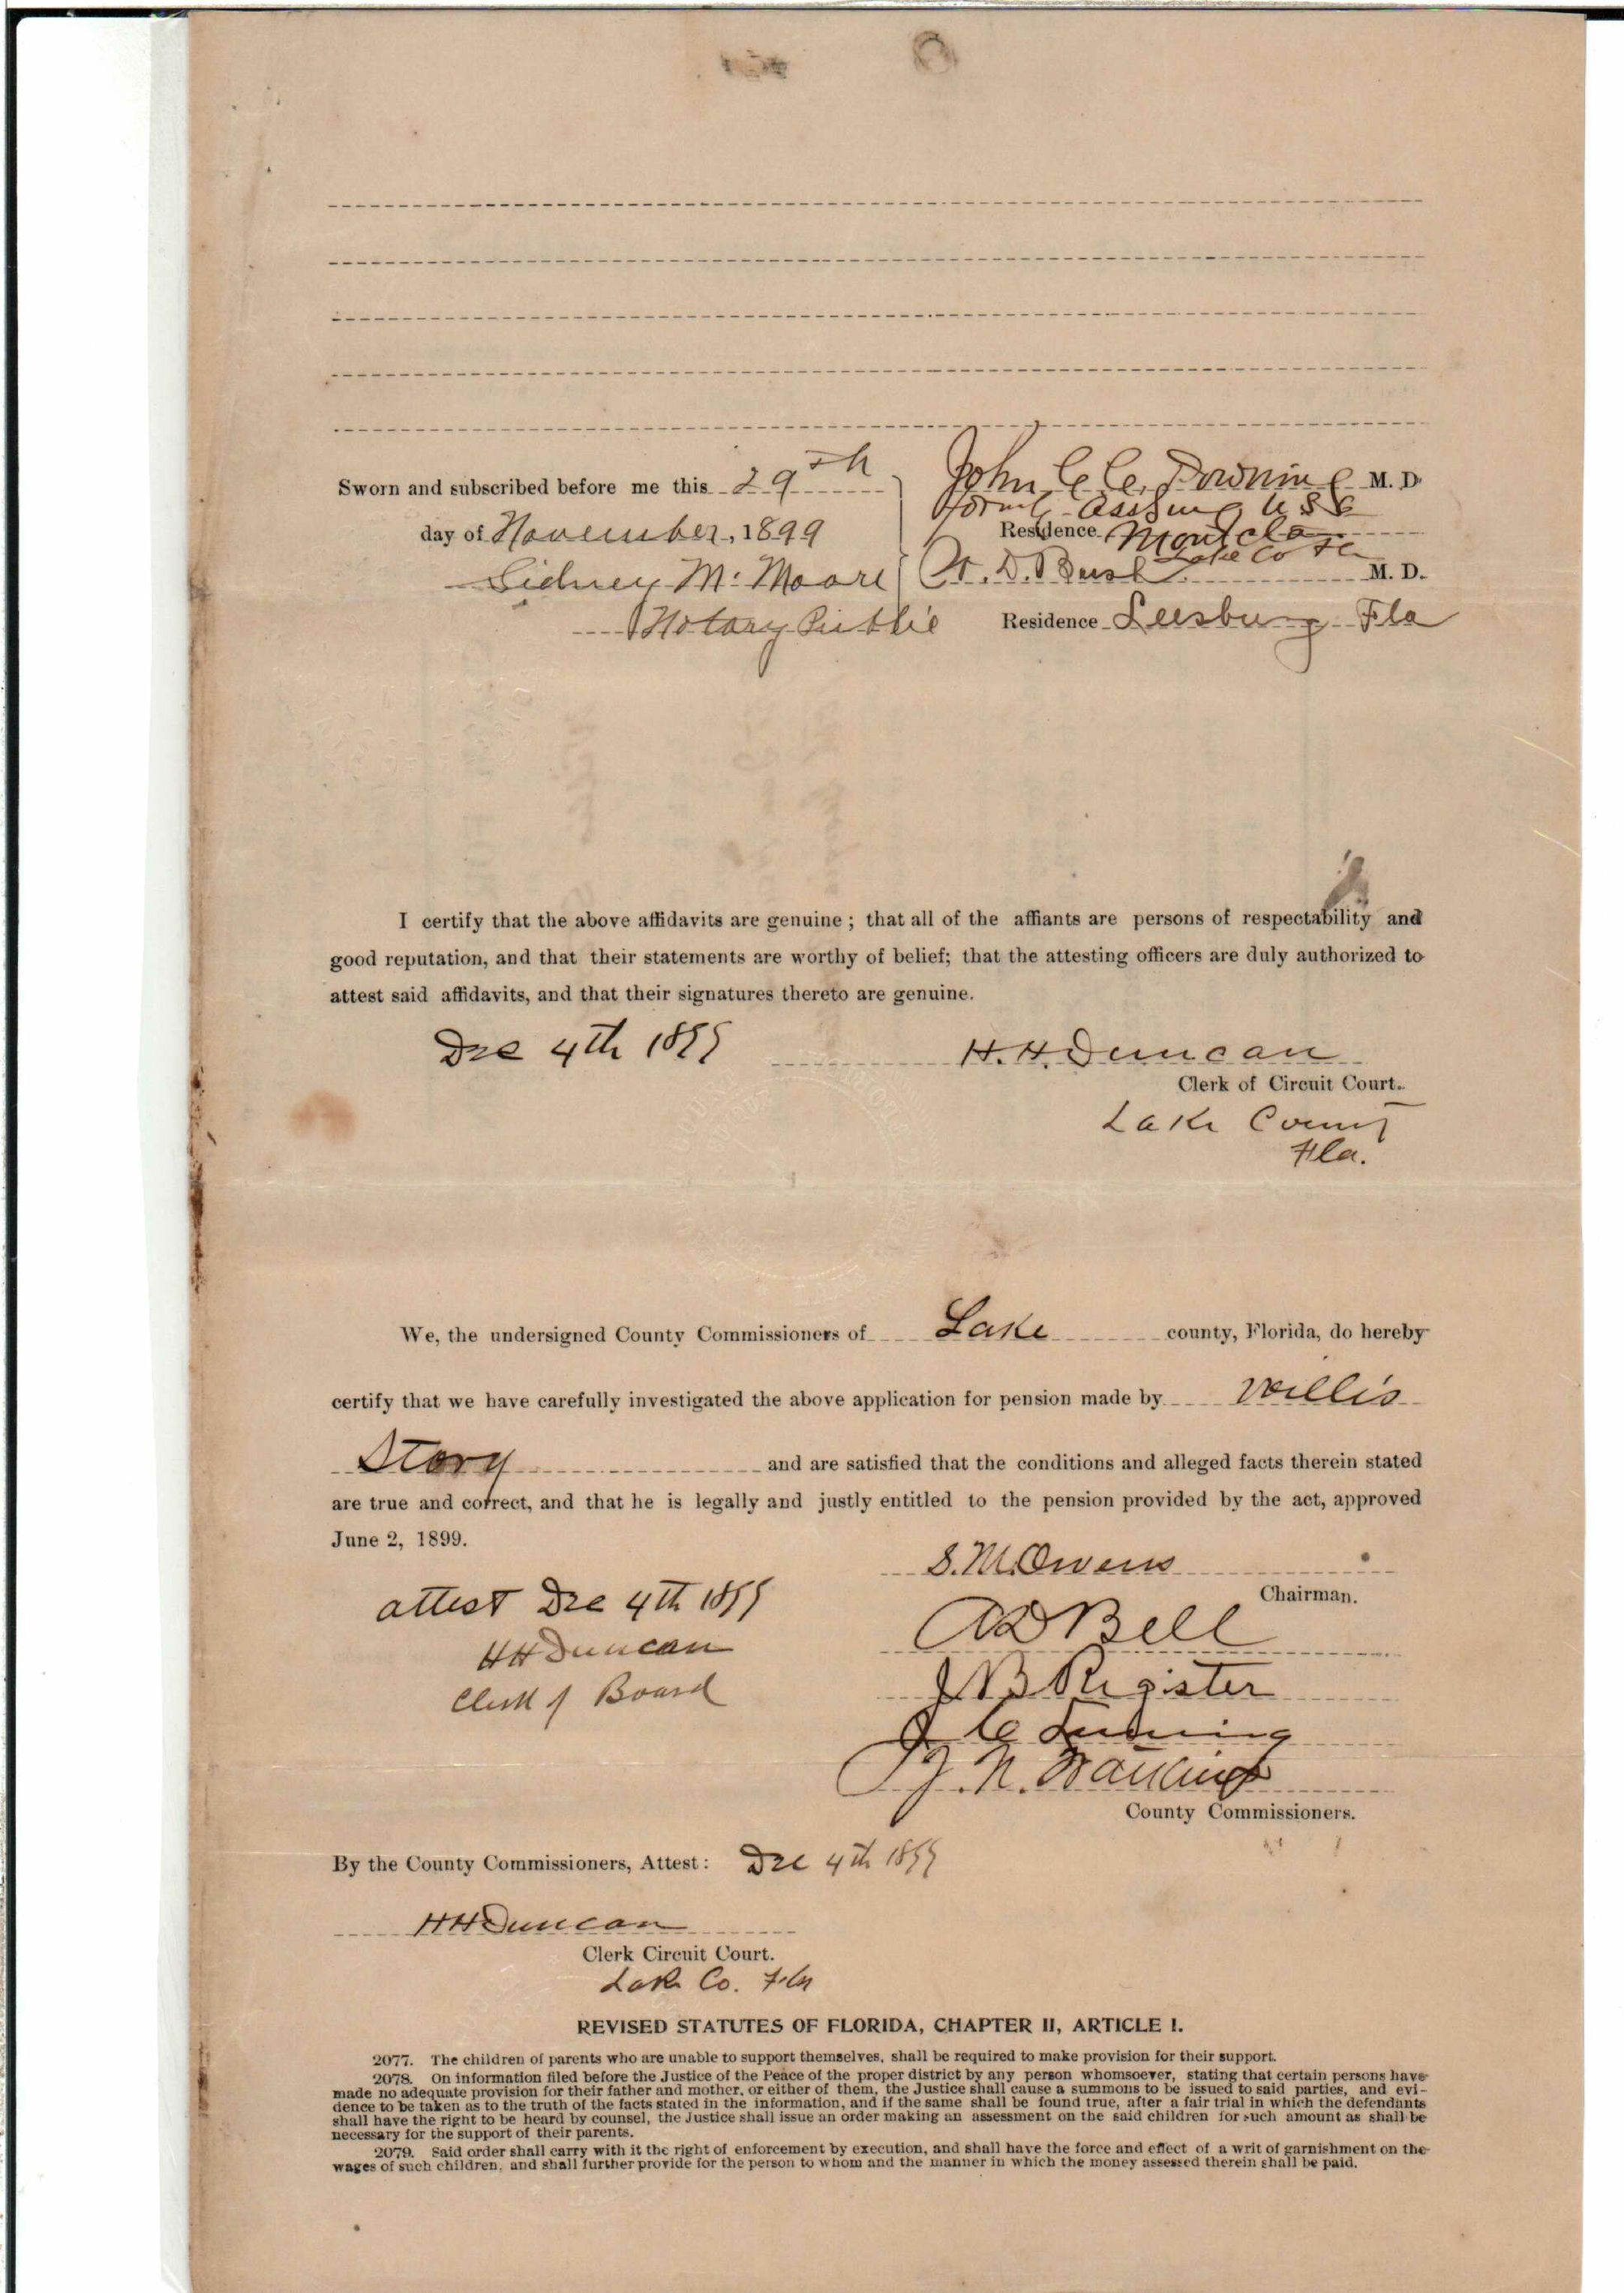 Sworn and subscribed before me this 29th
day of November, 1899
Sidney M. Moore
Notary Public
John C C. Downing M. D.
Formly Asst Surg U S
Residence
Lake Co Fla
D. Bush M. D.
Residence Leesburg Fla
I certify that the above affidavits are genuine ; that all of the affiants are persons of respectability and
good reputation, and that their statements are worthy of belief; that the attesting officers are duly authorized to
attest said affidavits, and that their signatures thereto are genuine.
Dec 4th 1899
H. H. Duncan
Clerk of Circuit Court.
Lake County
Fla.
We, the undersigned County Commissioners of Lake county, Florida, do hereby
certify that we have carefully investigated the above application for pension made by Willis
Story and are satisfied that the conditions and alleged facts therein stated
are true and correct, and that he is legally and justly entitled to the pension provided by the act, approved
June 2, 1899.
S. M. Owens
Chairman.
attest Dec 4th 1899
H H Duncan
Clerk of Board
A D Bell
J B Register
J C
J. N.
County Commissioners.
By the County Commissioners, Attest: Dec 4th 1899
H H Duncan
Clerk Circuit Court.
Lake Co. Fla
REVISED STATUTES OF FLORIDA, CHAPTER II, ARTICLE I.
2077. The children of parents who are unable to support themselves, shall be required to make provision for their support.
2078. On information filed before the Justice of the Peace of the proper district by any person whomsoever, stating that certain persons have
made no adequate provision for their father and mother, or either of them, the Justice shall cause a summons to be issued to said parties, and evi-
dence to be taken as to the truth of the facts stated in the information, and if the same shall be found true, after a fair trial in which the defendants
shall have the right to be heard by counsel, the Justice shall issue an order making an assessment on the said children for such amount as shall be
necessary for the support of their parents.
2079. Said order shall carry with it the right of enforcement by execution, and shall have the force and effect of a writ of garnishment on the
wages of such children, and shall further provide for the person to whom and the manner in which the money assessed therein shall be paid.